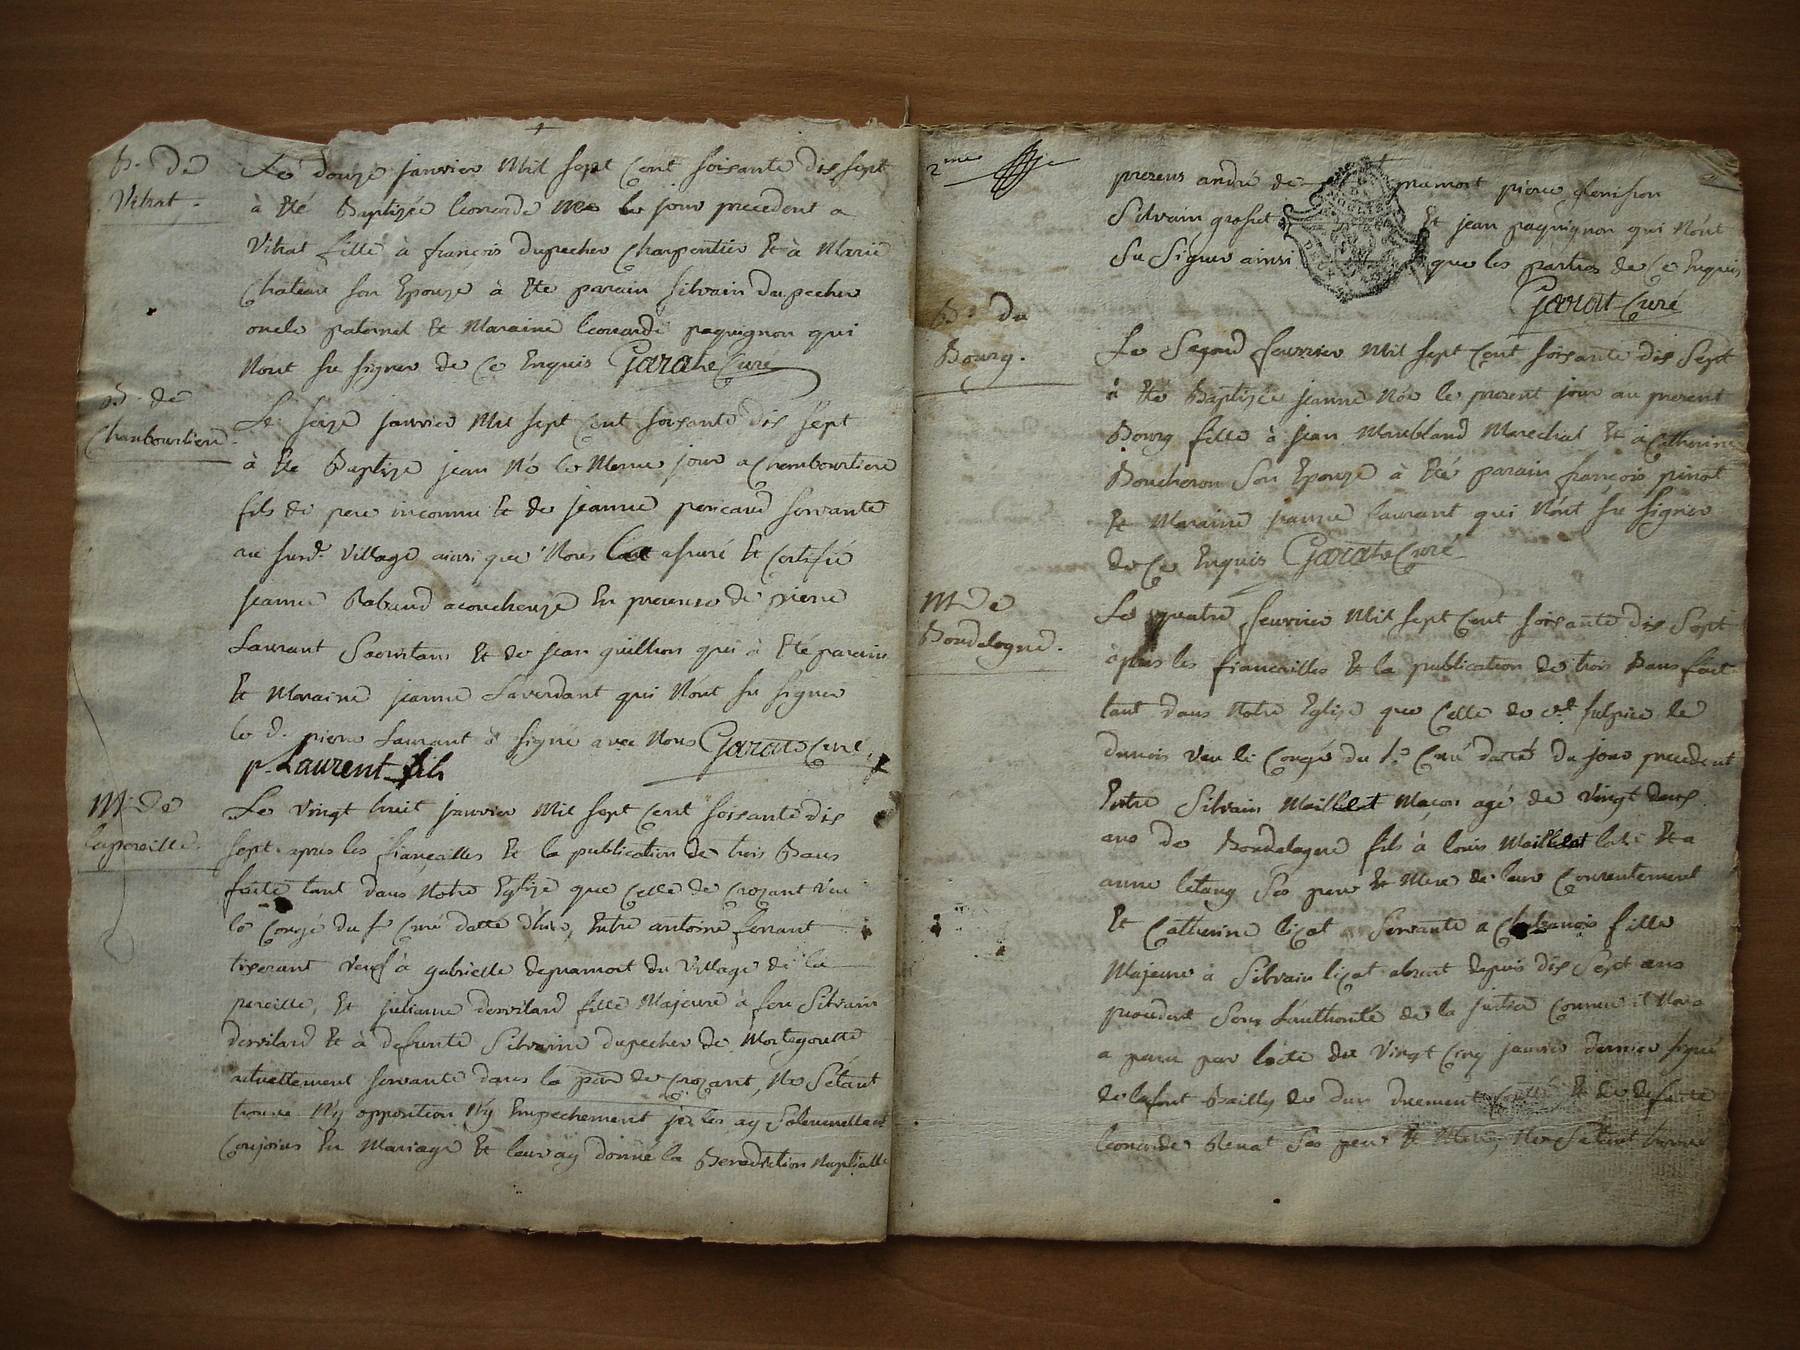 B. de
Vitrat.
Le douze janvier Mil sept Cent soisante dis sept
à Eté Baptizée leonarde Née le jour precedent a
Vitrat fille à françois dupecher Charpentier Et à Marie
Chateau son Epouze à Ete parain silvain dupecher
oncle paternel Et Maraine leonarde paquignon qui
N'ont su signer de Ce Enquis Garat Curé
B. de
Chanbourliere.
Le seize janvier Mil sept Cent soisante dis sept
à Eté Baptize jean Né le Meme jour a Chanbourliere
fils de pere inconnu Et de jeanne pericaud servante
au susd. village ainsi que Nous l'ont assuré Et Certifié
jeanne Rabaud acoucheuze En presence de pierre
Laurant Sacristain Et de jean guillion qui à Eté parain
Et Maraine jeanne Laverdant qui N'ont su signer
le d. pierre Laurant à signé avec Nous Garat Curé
p. Laurent fils
M. de
lapereille.
Le vingt huit janvier Mil sept Cent soisante dis
sept apres les fiançailles Et la publication de trois Bans
faite tant dans Notre Eglize que Celle de Crozant veu
le Congé du s. Curé datté d'hier, Entre antoine ferrant
tiserant veuf à gabrielle depramort du village de la
pereille, Et julianne dervilard fille Majeure à feu Silvain
dervilard Et à defunte Silvaine dupecher de Mortegoutte
actuellement servante dans la par de Crozant, Ne s'etant
trouvé N'y opposition N'y Empechement je les ay Solemnellemt
Conjoins En Mariage Et leur ay donné la Benediction Nuptialle
2me
presens andré de pramort pierre
Silvain grosset Et jean paquignon qui N'ont
Su Signer ainsi que les parties de Ce Enquis
Garat Curé
B. du
Bourg.
Le Segond fevrier Mil sept Cent soisante dis Sept
à Eté Baptizée jeanne Née le present jour au present
Bourg fille à jean Maubland Marechal Et à Catherine
Boucheron Son Epouze à Eté parain françois pinot
Et Maraine jeanne laurant qui N'ont su signer
de Ce Enquis Garat Curé
M. de
Bondalogne.
Le quatre fevrier Mil sept Cent soisante dis Sept
apres les fiancailles Et la publication de trois Bans fait
tant dans Notre Eglize que Celle de st. sulpice le
dunois veu le Congé du s. Curé datté du jour precedent
Entre Silvain Maillet Maçon agé de vingt deux
ans de Bondalogne fils à louis Maillet Et a
anne letang Ses pere Et Mere de leur Consentement
Et Catherine liçat Servante a fille
Majeure à Silvain liçat absent depuis dis Sept ans
procedent Sous L'authorité de la justice Comme il Nous
a paru par l'acte du vingt Cinq janvier dernier signé
de lafont Bailly de dun duement Et de defunte
leonarde Renat Ses pere Et Mere, Ne S'etant trouvé